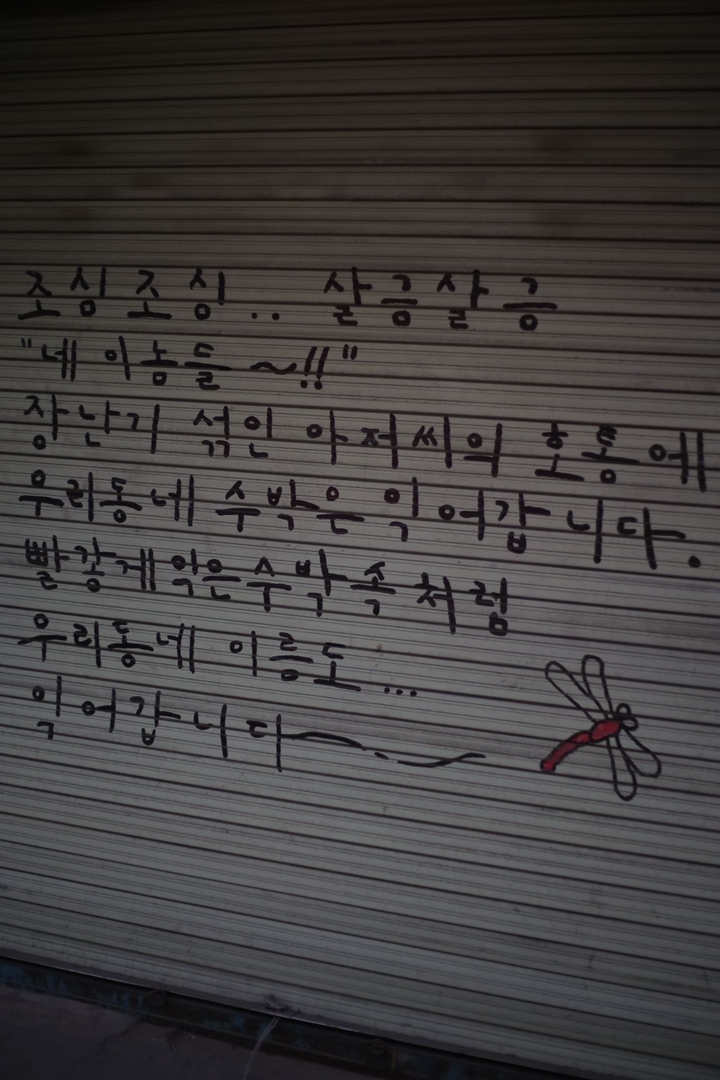 조심조심.. 살금살금
"네 이놈들~!!"
장난기 섞인 아저씨의 호통에
우리동네 수박은 익어갑니다.
빨갛게 익은 수박 속처럼
우리동네 이름도...
익어갑니다~~